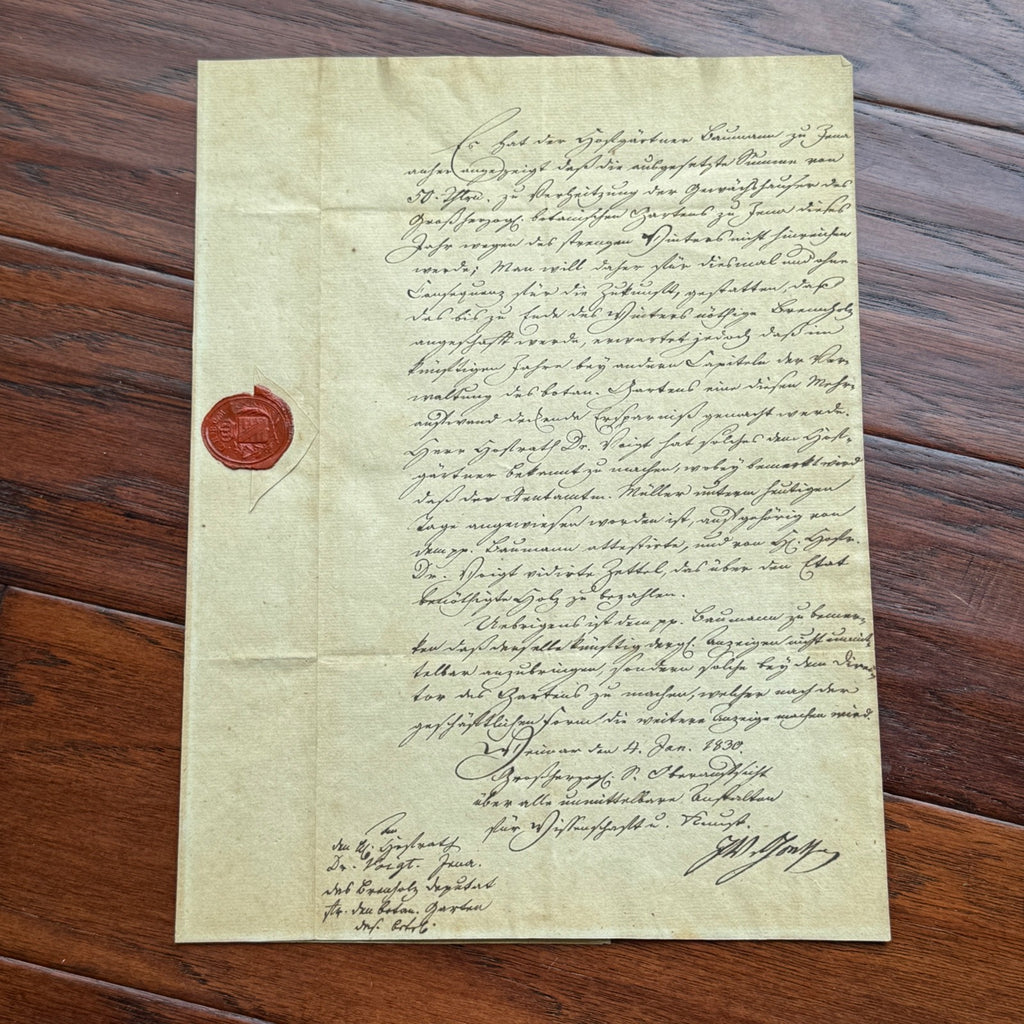 Es hat der Hofgärtner Baumann zu Jena
anher angezeigt daß die ausgesetzte Summe von
50. Thlrn. zu Verheitzung der Gewächshäuser des
Großherzogl. botanischen Gartens zu Jena dieses
Jahr wegen des strengen Winters nicht hinreichen
werde; Man will daher für diesmal und ohne
Consequenz für die Zukunft, gestatten, daß
das bis zu Ende des Winters nöthige Brennholz
angeschafft werde, erwartet jedoch daß im
künftigen Jahre bey andern Capiteln der Ver-
waltung des botan. Gartens eine diesen Mehr-
aufwand deckende Ersparniß gemacht werde.
Herr Hofrath Dr. Voigt hat solches dem Hof-
gärtner bekannt zu machen, wobey bemerkt wird
daß der Rentamtm. Müller unterm heutigen
Tage angewiesen worden ist, auf gehörig von
dem pp. Baumann attestirte, und von H. Hofr.
Dr. Voigt vidirte Zettel, das über den Etat
benöthigte Holz zu bezahlen.
Uebrigens ist dem pp. Baumann zu bemer-
ken daß derselbe künftig dergl. Anzeigen nicht unmit
telbar anzubringen, sondern solche bey dem Direc-
tor des Gartens zu machen, welcher nach der
geschäftlichen Form die weitere Anzeige machen wird.
Weimar den 4. Jan. 1830.
Großherzogl. S. Oberaufsicht
über alle unmittelbare Anstalten
für Wissenschaft u. Kunst.
JWvGoethe
An
den H. Hofrath
Dr. Voigt. Jena.
das Brenholz deputat
für den botan. Garten
betr.